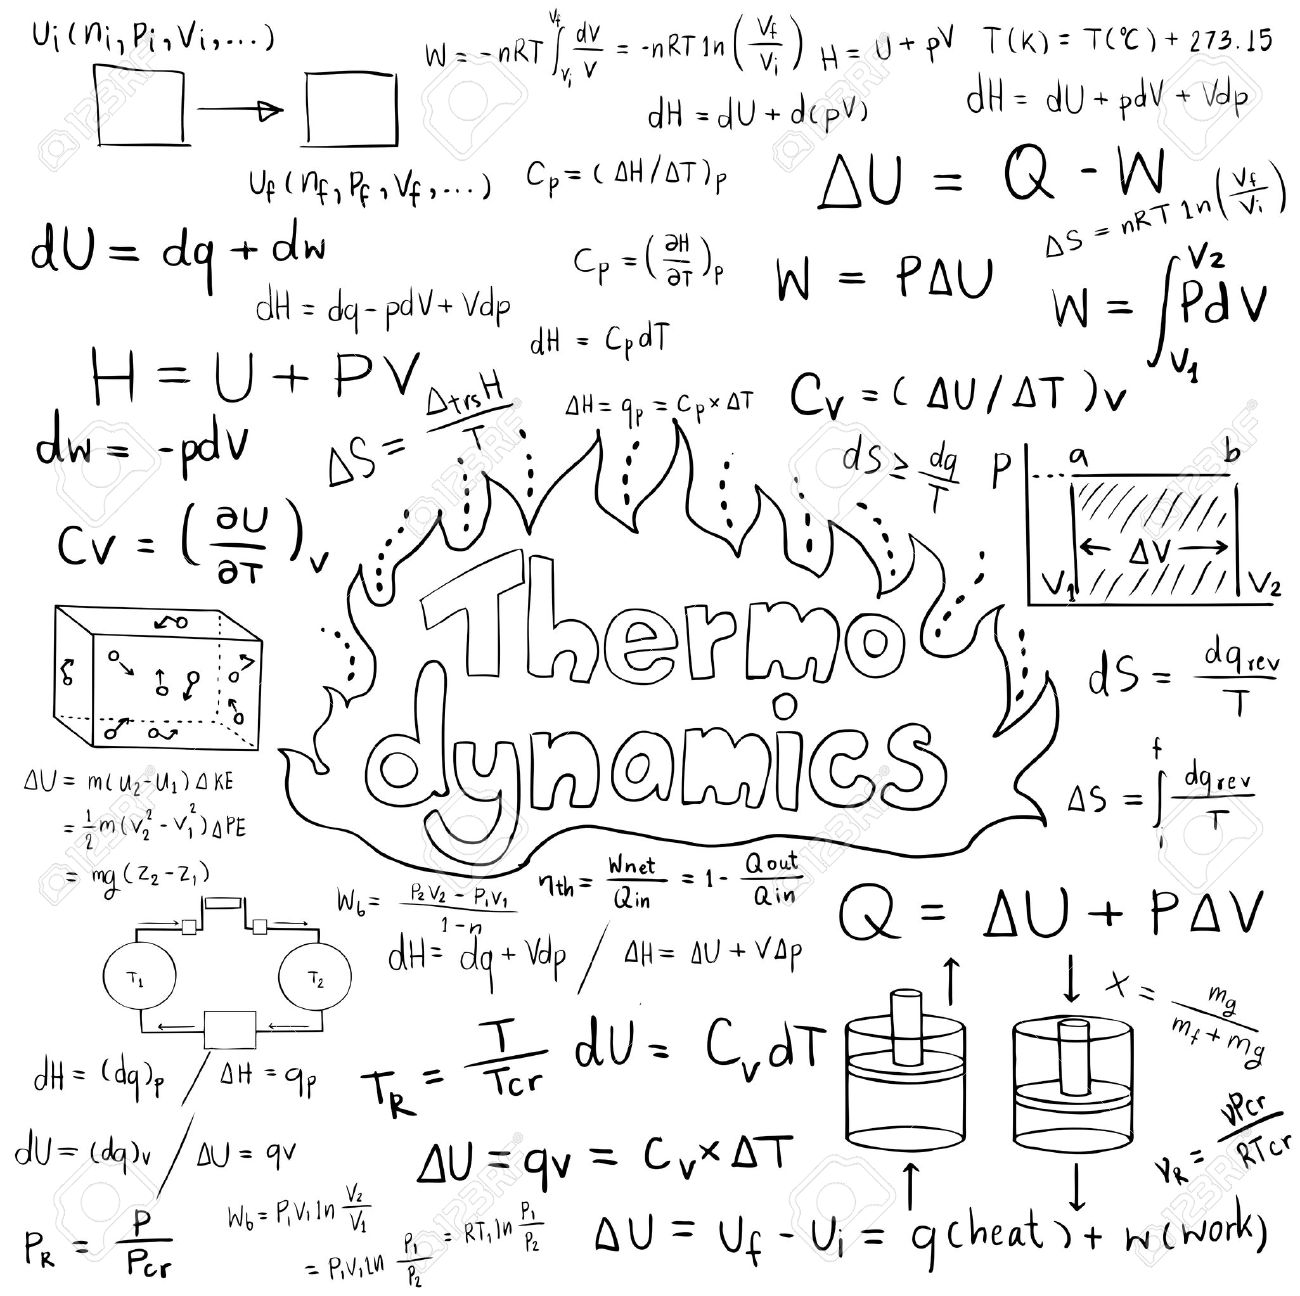 Ui(ni, Pi, Vi, ...)
W = -nRT ∫Vi^Vf dV/V = -nRT ln(Vf/Vi)
H = U + pV
T(K) = T(°C) + 273.15
dH = dU + d(pV)
dH = dU + pdV + Vdp
Uf(nf, Pf, Vf, ...)
Cp = (ΔH/ΔT)p
ΔU = Q - W
ΔS = nRT ln(Vf/Vi)
dU = dq + dw
Cp = (∂H/∂T)p
W = PΔU
W = ∫V1^V2 PdV
dH = dq - pdV + Vdp
dH = CpdT
H = U + PV
ΔS = ΔtrsH/T
ΔH = qp = Cp×ΔT
Cv = (ΔU/ΔT)v
dw = -pdV
dS ≥ dq/T
P a b
ΔV
V1 V2
Cv = (∂U/∂T)v
Thermo
dynamics
dS = dqrev/T
ΔU = m(u2-u1)ΔKE
= 1/2 m(V2²-V1²)ΔPE
= mg(Z2-Z1)
ΔS = ∫i^f dqrev/T
Wb = P2V2 - P1V1/1-n
ηth = Wnet/Qin = 1 - Qout/Qin
Q = ΔU + PΔV
T1 T2
dH = dq + Vdp / ΔH = ΔU + VΔp
X = mg/mf+mg
dH = (dq)p / ΔH = qp
TR = T/Tcr
dU = CvdT
dU = (dq)v / ΔU = qv
ΔU = qv = Cv×ΔT
νR = νPcr/RTcr
PR = P/Pcr
Wb = P1V1 ln V2/V1
= P1V1 ln P1/P2
= RT1 ln P1/P2
ΔU = Uf - Ui = q(heat) + w(work)
123RF